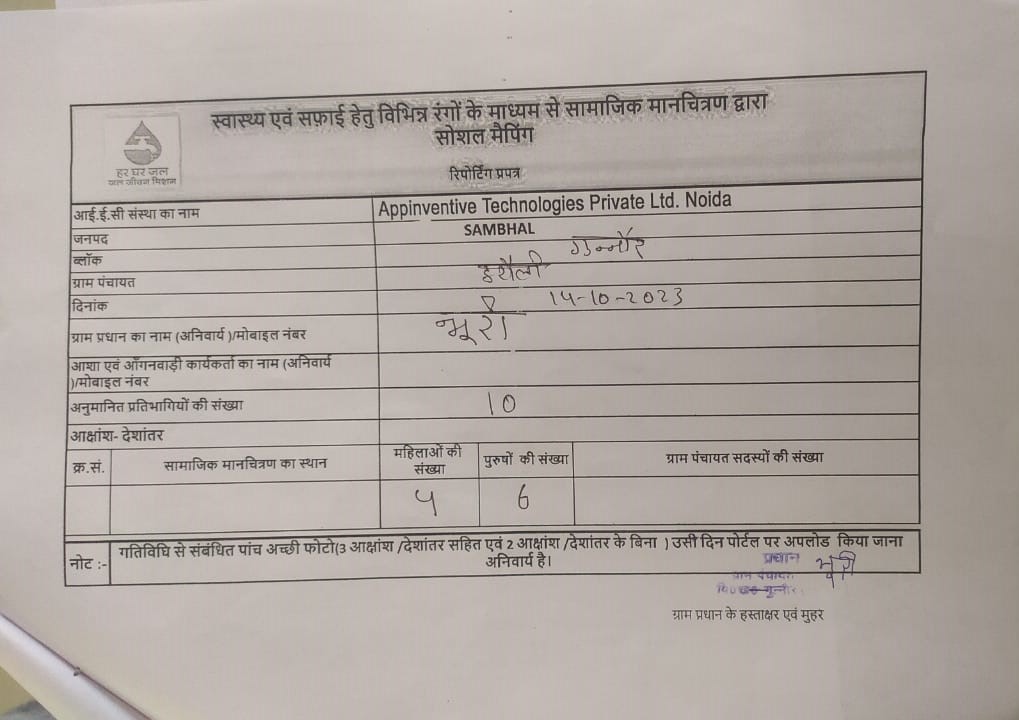 स्वास्थ्य एवं सफ़ाई हेतु विभिन्न रंगों के माध्यम से सामाजिक मानचित्रण द्वारा
सोशल मैपिंग
हर घर जल
जल जीवन मिशन
रिपोर्टिंग प्रपत्र
आई.ई.सी संस्था का नाम Appinventive Technologies Private Ltd. Noida
जनपद SAMBHAL
ब्लॉक गुन्नौर
ग्राम पंचायत
दिनांक 14-10-2023
ग्राम प्रधान का नाम (अनिवार्य )/मोबाइल नंबर भूरी
आशा एवं आँगनवाड़ी कार्यकर्ता का नाम (अनिवार्य
)/मोबाइल नंबर
अनुमानित प्रतिभागियों की संख्या 10
आक्षांश- देशांतर
क्र.सं. सामाजिक मानचित्रण का स्थान महिलाओं की संख्या पुरुषों की संख्या ग्राम पंचायत सदस्यों की संख्या
4 6
नोट :- गतिविधि से संबंधित पांच अच्छी फोटो(3 आक्षांश /देशांतर सहित एवं 2 आक्षांश /देशांतर के बिना ) उसी दिन पोर्टल पर अपलोड किया जाना
अनिवार्य है।
प्रधान
ग्राम पंचायत
गुन्नौर
ग्राम प्रधान के हस्ताक्षर एवं मुहर